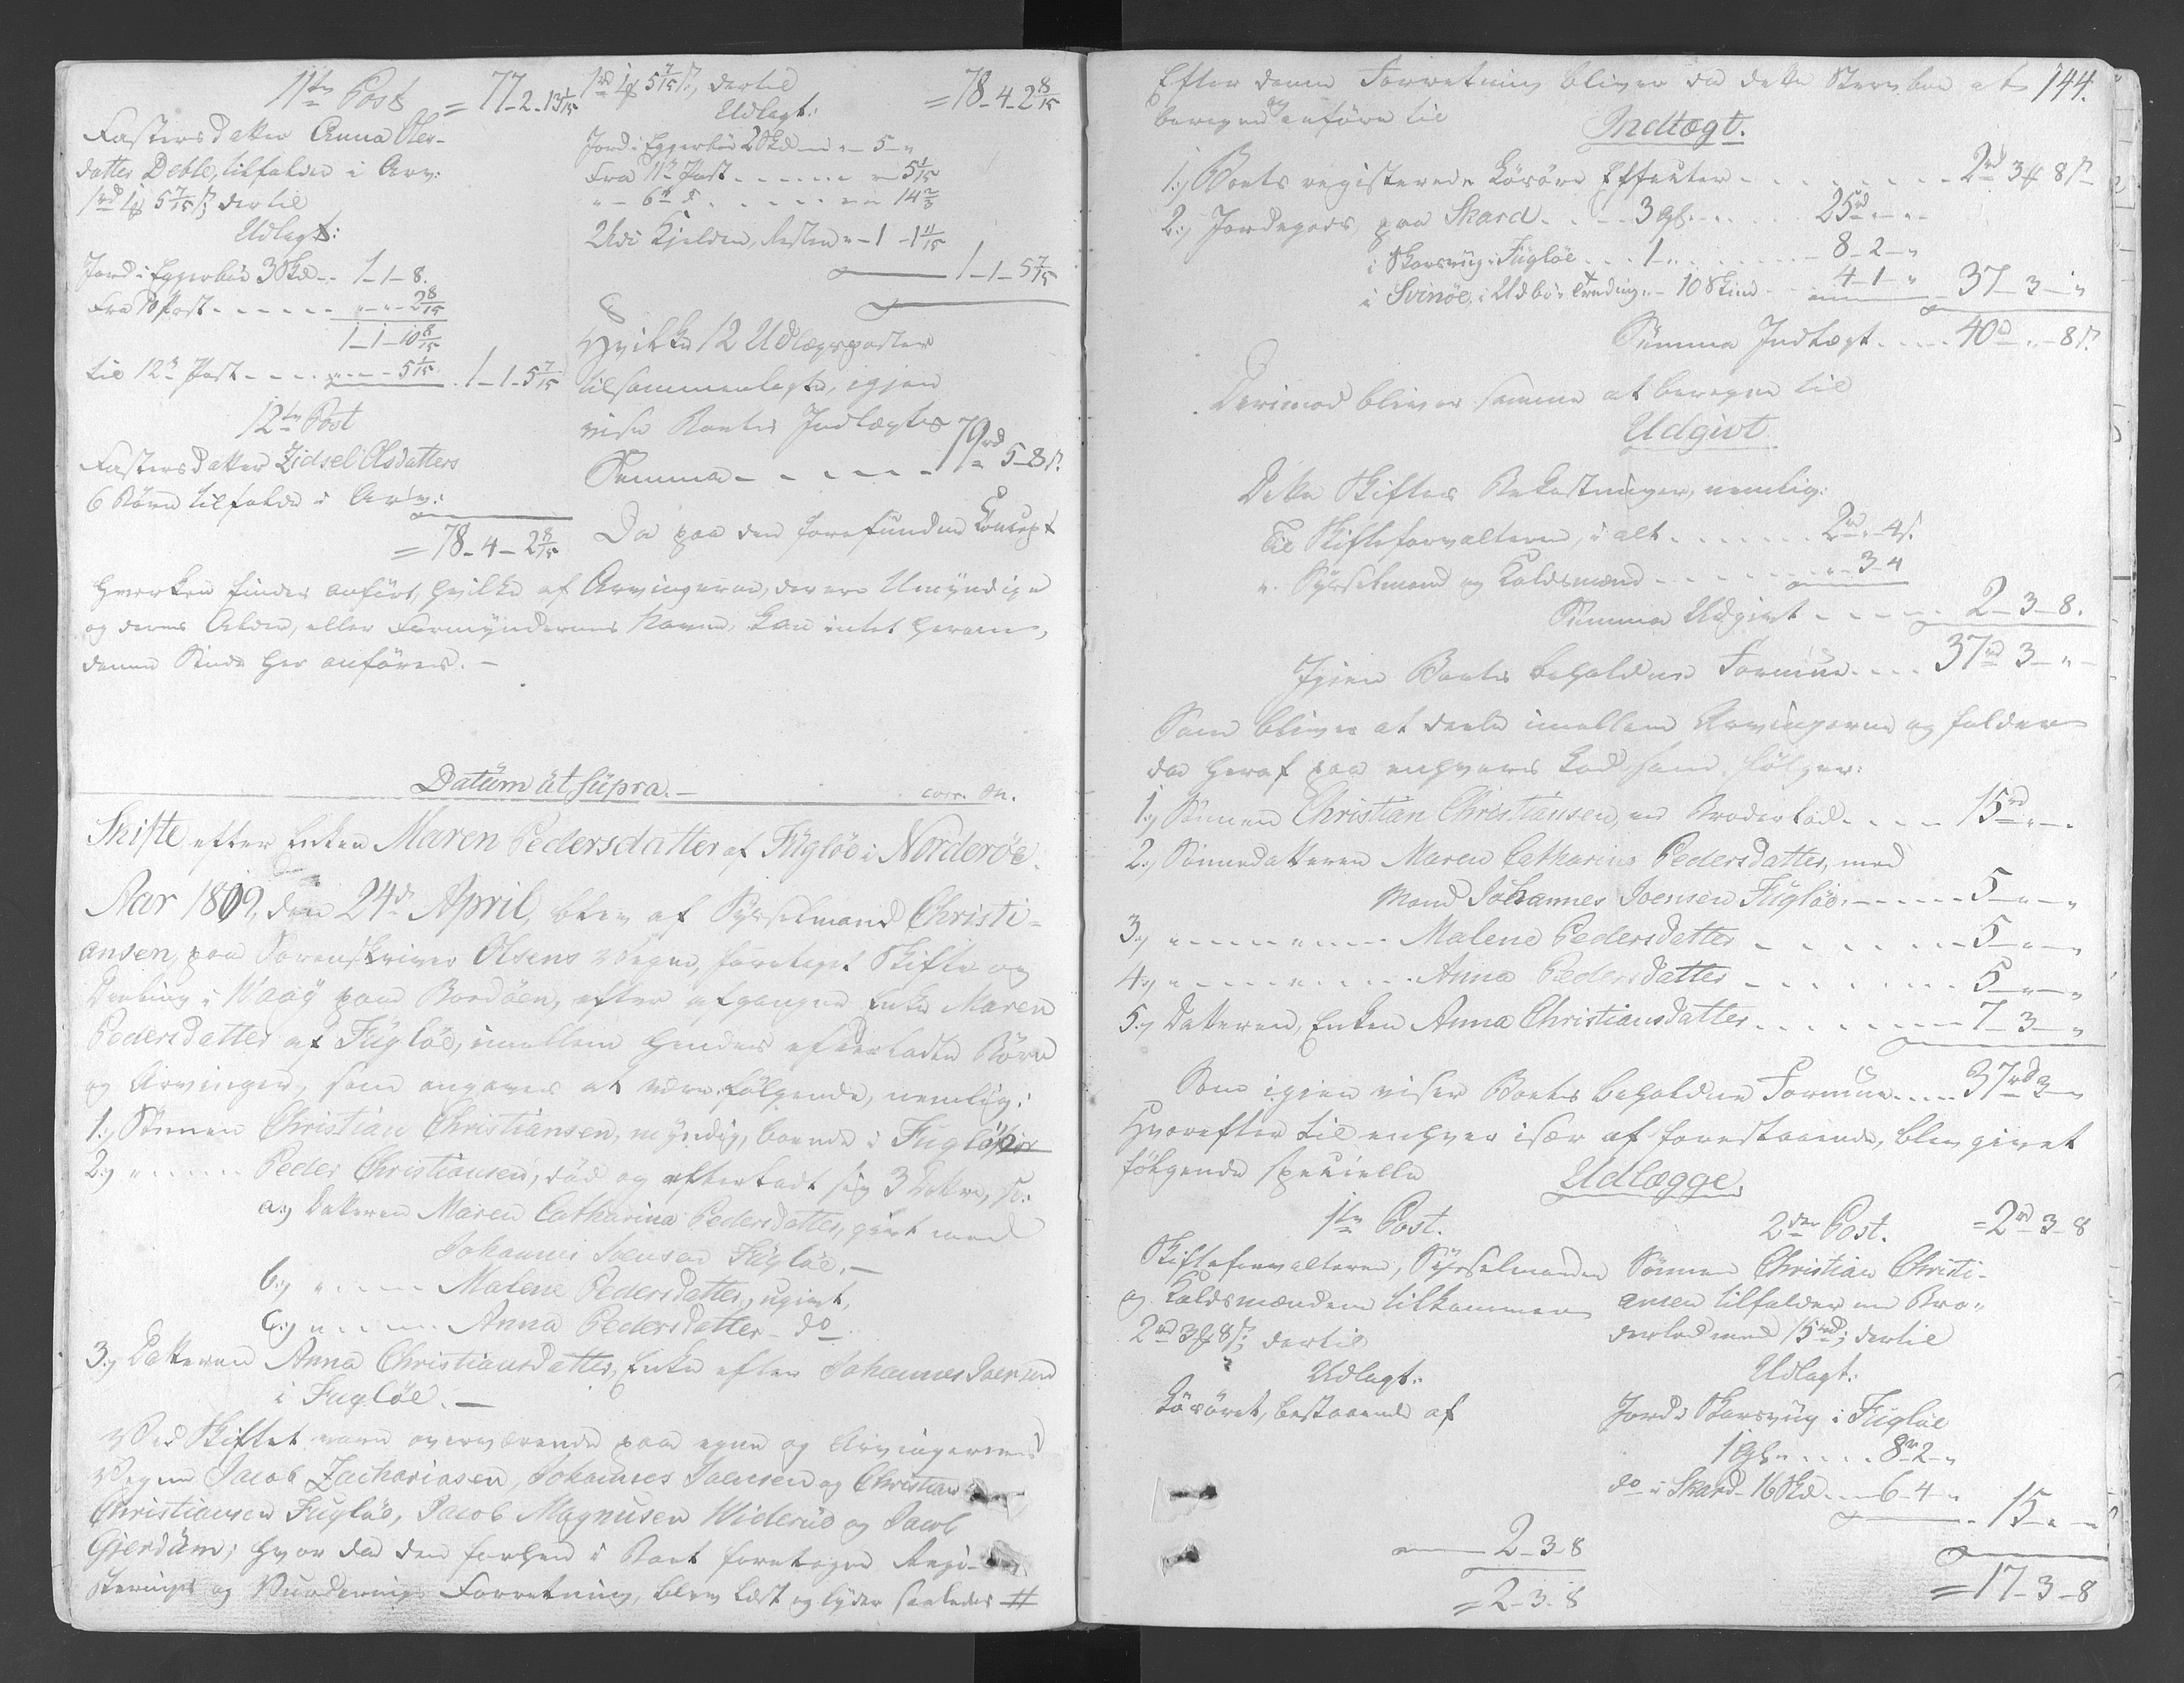 11te Post = 77-2-13 1/15
Fastersdatter Anna Oles-
datter Deble, tilfalder i Arv:
1rd 1ꝑ 5 7/15 s; dertil
Udlagt:
Jord i Eggerbøe 3 Skd - - 1-1-8.
Fra 10 Post - - - - - - „-„-2 8/15
1-1-10 8/15
til 12te Post - - - - „-„-5 1/15 1-1-5 7/15
12te Post
Fastersdatter Zidsel Olsdatters
6 Børn tilfalder i Arv:
= 78-4-2 8/15
1rd 1ꝑ 5 7/15 s, dertil = 78-4-2 8/15
Udlagt:
Jord i Eggerbøe 2 Skd - „- 5-„
Fra 11te Post - - - - - - „ 5 1/15
„ - 6te - - - - - - „-„ 14 2/3
Udi Kjelden, Resten „-1-1 11/15
1-1-5 7/15
Hvilke 12 Udlægsposter
tilsammenlagte, igjen
viise Boets Indtægtes
Summa - - - - - 79rd 5-8 s.
Da paa den forefundne Koncept
hverken findes anført, hvilke af Arvingerne, der ere Umyndige
og deres Alder, eller Formyndernes Navne, kan intet herom,
denne Sinde her anføres. -
Datüm ùt süpra. - corr. M.
Skifte efter Enken Maren Pedersdatter af Fügløe i Norderøe.
Aar 1809, den 24de April, blev af Sysselmand Christi-
ansen, paa Sorenskriver Olsens Vegne, foretaget Skifte og
Deeling i Waag paa Bordøen, efter afgangne Enke Maren
Pedersdatter af Fügløe, imellem hendes efterladte Børn
og Arvinger, som angaves at være følgende, nemlig:
1:, Sønnen Christian Christiansen, myndig, boende i Fugløe
2:, „ - - - - Peder Christiansen, død og efterladt sig 3 Døttre, s:
a:, Datteren Maren Catharina Pedersdatter, givt med
Johannes Joensen Fügløe. -
b:, „ - - - - Malene Pedersdatter, ugivt,
c:, „ - - - - Anna Pedersdatter - do
3:, Datteren Anna Christiansdatter, Enke efter Johannes Joensen
i Fugløe. -
Ved Skiftet vare overværende paa egne og Arvingernes
Vegne Jacob Zachariasen, Johannes Joensen og Christian
Christiansen Fugløe, Jacob Magnusen Wideröe og Jacob
Gjerdüm; hvor da den forhen i Boet foretagne Regi-
sterings og Vurderings Forretning, blev læst og lyder saaledes #
Efter denne Forretning bliver da dette Sterboe at 144.
beregne og anføre til
Indtægt.
1:, Boets registerede Løsøre Effecter - - - - - - - 2rd 3ꝑ 8 s
2:, Jordegods, paa Skard - - - 3 gl. - - - - 25rd „-„
i Skarsvüg i Fügløe - - - 1 „ - - - - - 8-2-„
i Svinøe, i Udbøe - 10 Skind - - 4-1-„ 37-3-„
Summa Indtægt - - - - 40rd „-8 s.
Derimod bliver samme at beregne til
Udgivt
Dette Skiftes Bekostninger, nemlig:
til Skifteforvalteren, i alt - - - - - - 2rd „-4 s.
„ Sysselmand og Laldsmænd - - - - - „-3-4
Summa Udgivt - - - - - 2-3-8.
Igien Boets beholdne Formue - - - - 37rd 3-„-
Som bliver at deele imellem Arvingerne og falder
da heraf paa enhvers Lod som følger:
1:, Sønnen Christian Christiansen, en Broderlod - - - - 15rd „-„
2:, Sønnedatteren Maren Catharina Pedersdatter, med
Mand Johannes Joensen Fügløe - - - - - - 5-„-„
3:, „ - - - „ - - - Malene Pedersdatter - - - - - - - 5-„-„
4:, „ - - - - „ - - - Anna Pedersdatter - - - - - - - 5-„-„
5:, Datteren, Enken Anna Christiansdatter - - - - - - - 7-3-„
Som igien viser Boets beholdne Formüe - - - - 37rd 3-„
Hvorefter til enhver især af forestaaende, blev givet
følgende specielle Udlægge.
1te Post.
Skifteforvalteren, Sysselmanden
og Laldsmændene tilkommer
2rd 3ꝑ 8 s; dertil
Udlagt:
Løsøret, bestaaende af
2-3-8
= 2-3-8
2den Post. = 2rd 3-8
Sønnen Christian Christi-
ansen tilfalder en Bro-
derlod med 15rd; dertil
Udlagt:
Jord i Skarsvüg i Fügløe
1 gl. „ - - - 8rd 2-„
do i Skard 16 Skd - - 6-4-„
15-„-„
= 17-3-8